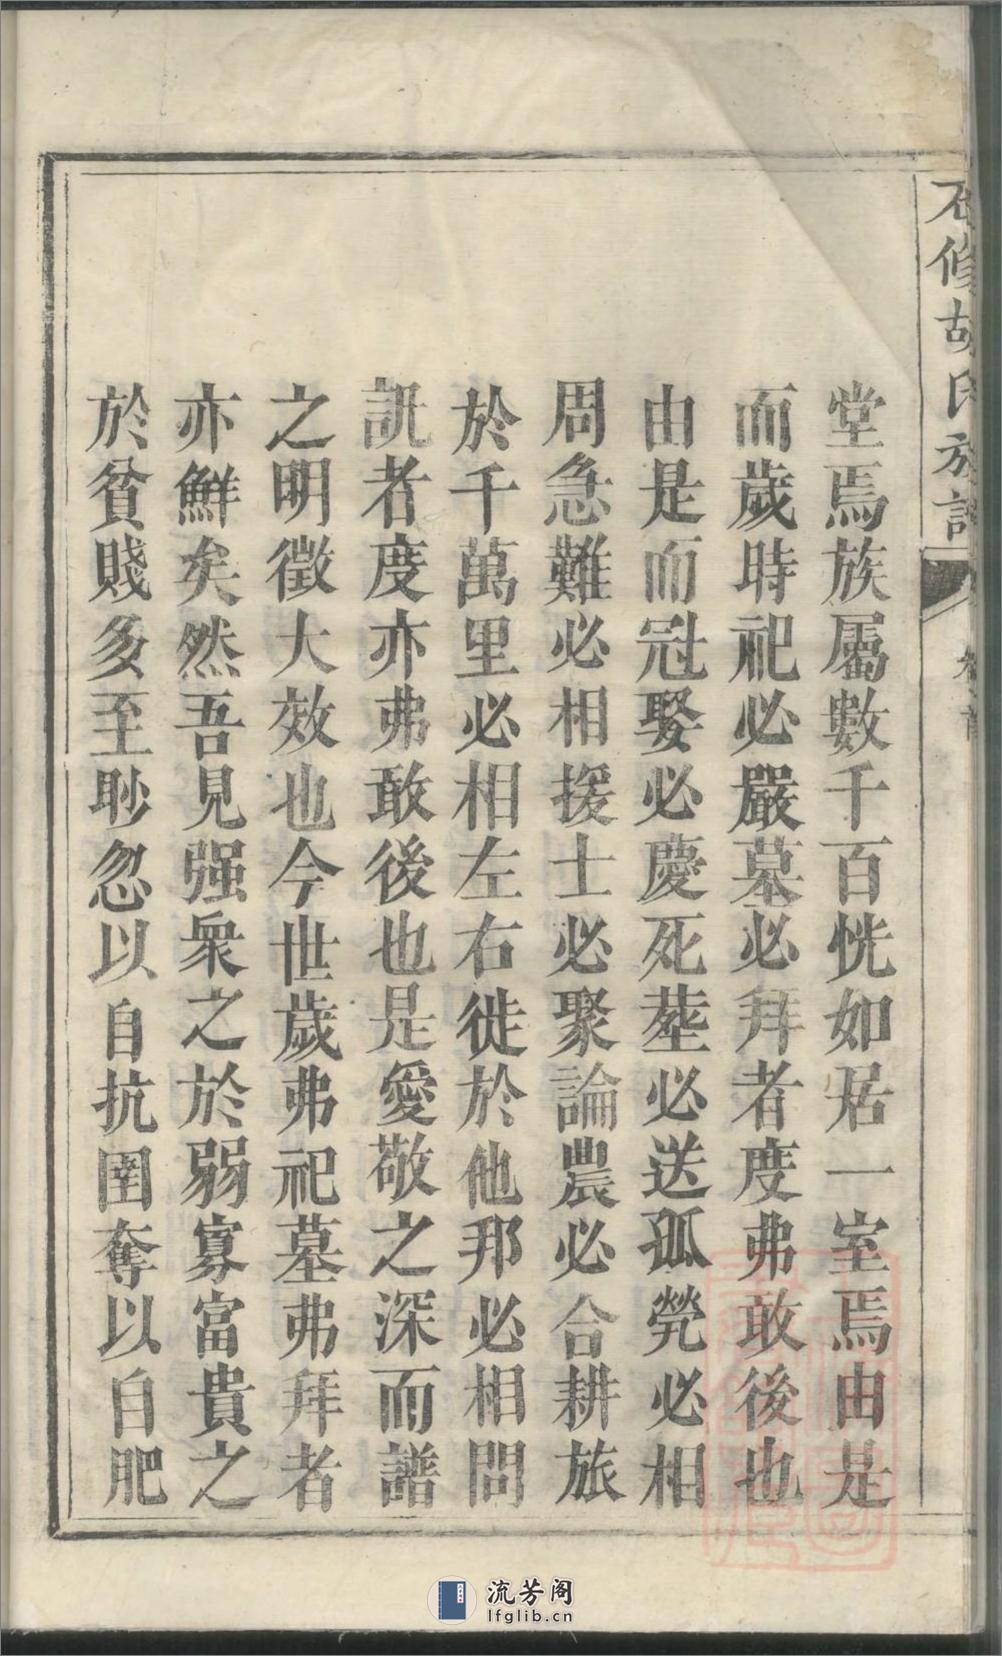 修胡氏族譜
卷首
堂焉族屬數千百恍如居一室焉由是
而歲時祀必嚴墓必拜者度弗敢後也
由是而冠娶必慶死塟必送孤煢必相
周急難必相援士必聚論農必合耕旅
於千萬里必相左右徙於他邦必相問
訊者度亦弗敢後也是愛敬之深而譜
之明徵大效也今世歲弗祀墓弗拜者
亦鮮矣然吾見强衆之於弱寡富貴之
於貧賤多至眇忽以自抗圉奪以自肥
流芳阁
lfglib.cn